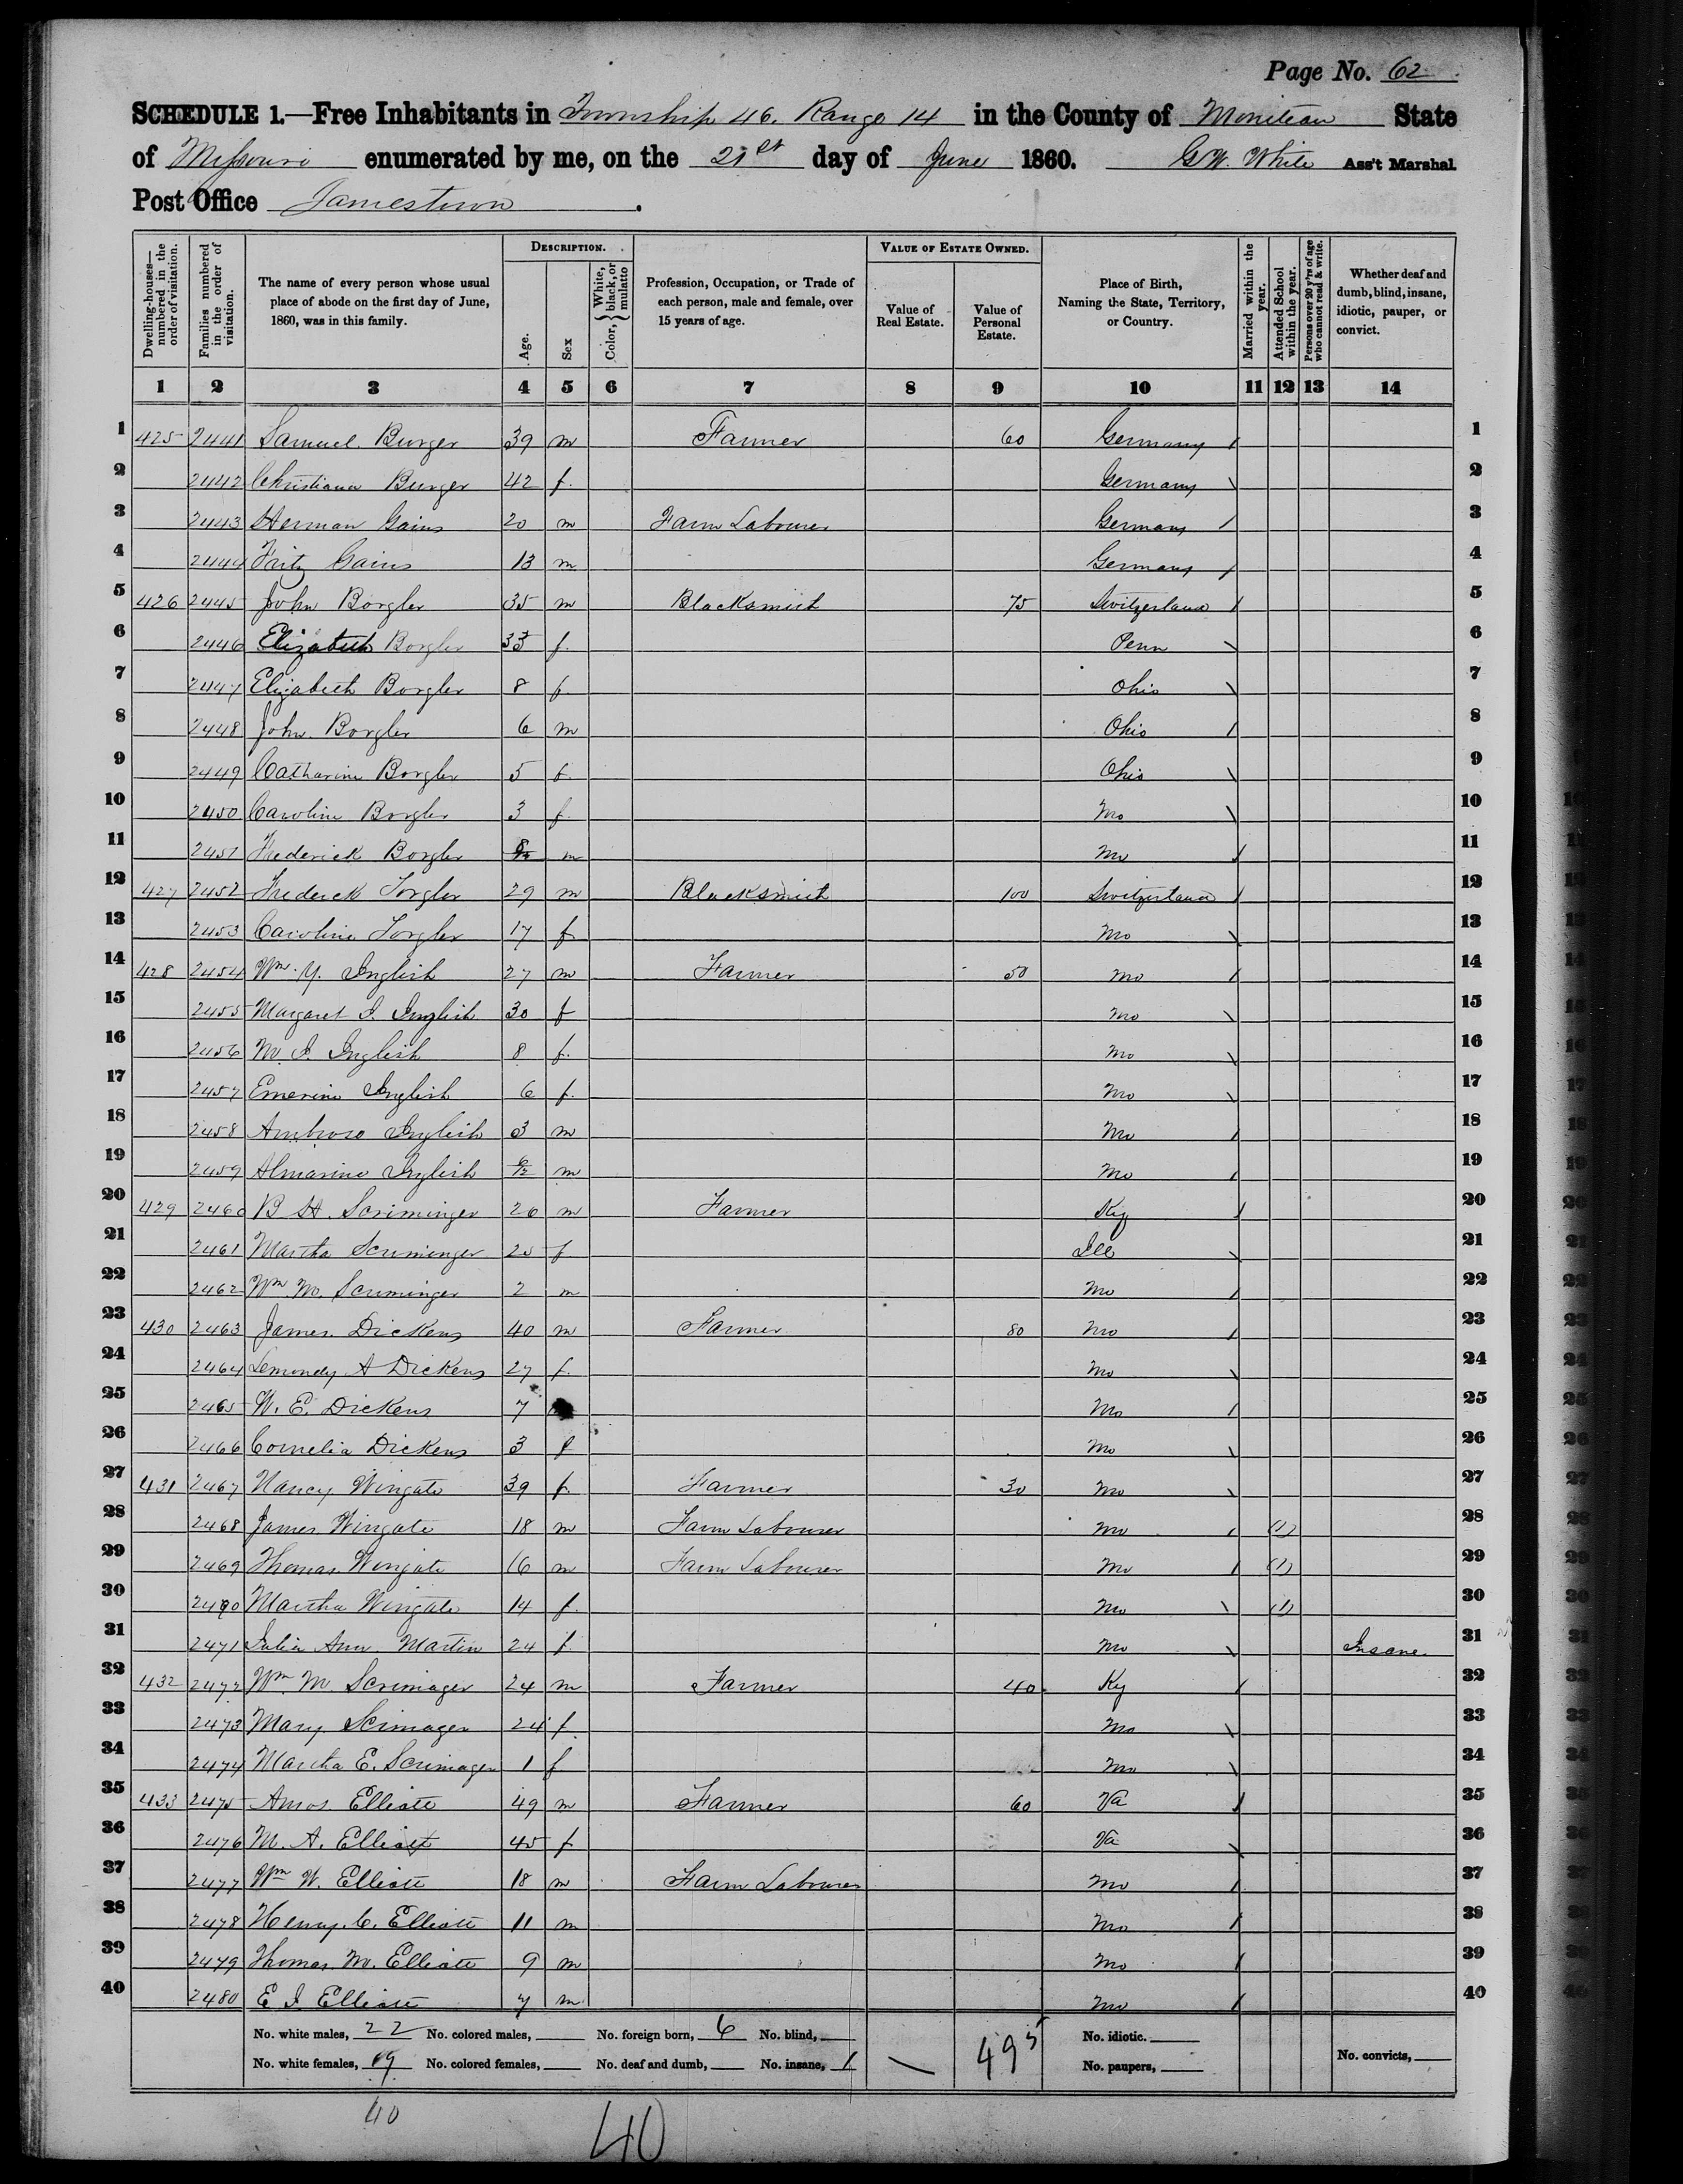 Page No. 62
SCHEDULE 1.—Free Inhabitants in Township 46. Range 14 in the County of Moniteau State
of Missouri enumerated by me, on the 21st day of June 1860. G.W. White Ass't Marshal
Post Office Jamestown.
DESCRIPTION. VALUE OF ESTATE OWNED.
Dwelling-houses—numbered in the order of visitation. Families numbered in the order of visitation. The name of every person whose usual place of abode on the first day of June, 1860, was in this family. Age. Sex Color, {White, black, or mulatto Profession, Occupation, or Trade of each person, male and female, over 15 years of age. Value of Real Estate. Value of Personal Estate. Place of Birth, Naming the State, Territory, or Country. Married within the year. Attended School within the year. Persons over 20 y'rs of age who cannot read & write. Whether deaf and dumb, blind, insane, idiotic, pauper, or convict.
1 2 3 4 5 6 7 8 9 10 11 12 13 14
1 425 2441 Samuel Burger 39 m Farmer 60 Germany / 1
2 2442 Christiana Burger 42 f. Germany \ 2
3 2443 Herman Gains 20 m Farm Labourer Germany / 3
4 2444 Fritz Gains 13 m Germany / 4
5 426 2445 John Borgler 35 m Blacksmith 75 Switzerland / 5
6 2446 Elizabeth Borgler 33 f. Penn \ 6
7 2447 Elizabeth Borgler 8 f. Ohio \ 7
8 2448 John Borgler 6 m Ohio / 8
9 2449 Catharine Borgler 5 f. Ohio \ 9
10 2450 Caroline Borgler 3 f. Mo \ 10
11 2451 Frederick Borgler 8/12 m Mo / 11
12 427 2452 Frederick Torgler 29 m Blacksmith 100 Switzerland / 12
13 2453 Caroline Torgler 17 f. Mo \ 13
14 428 2454 Wm. Y. Inglish 27 m Farmer 50 Mo / 14
15 2455 Margaret I. Inglish 30 f Mo \ 15
16 2456 M. I. Inglish 8 f. Mo \ 16
17 2457 Emerine Inglish 6 f. Mo \ 17
18 2458 Ambrose Inglish 3 m Mo / 18
19 2459 Almarine Inglish 6/12 m Mo / 19
20 429 2460 B H. Scriminger 26 m Farmer Ky / 20
21 2461 Martha Scriminger 25 f Ill \ 21
22 2462 Wm. M. Scriminger 2 m Mo / 22
23 430 2463 James Dickens 40 m Farmer 80 Mo / 23
24 2464 Lemondy A Dickens 27 f. Mo \ 24
25 2465 W. E. Dickens 7 Mo / 25
26 2466 Cornelia Dickens 3 f Mo \ 26
27 431 2467 Nancy Wingate 39 f. Farmer 30 Mo \ 27
28 2468 James Wingate 18 m Farm Labourer Mo / (1) 28
29 2469 Thomas Wingate 16 m Farm Labourer Mo / (1) 29
30 2470 Martha Wingate 14 f. Mo \ (1) 30
31 2471 Julia Ann Martin 24 f. Mo \ Insane. 31
32 432 2472 Wm. M. Scrimager 24 m Farmer 40 Ky / 32
33 2473 Mary Scrimager 24 f. Mo \ 33
34 2474 Martha E. Scrimager 1 f Mo \ 34
35 433 2475 Amos Elliott 49 m Farmer 60 Va / 35
36 2476 M. A. Elliott 45 f Va \ 36
37 2477 Wm W. Elliott 18 m Farm Labourer Mo / 37
38 2478 Henry C. Elliott 11 m Mo / 38
39 2479 Thomas M. Elliott 9 m Mo / 39
40 2480 E I Elliott 7 m Mo / 40
No. white males, 22 No. colored males, No. foreign born, 6 No. blind, 495 No. idiotic.
No. white females, 19 No. colored females, No. deaf and dumb, No. insane, 1 No. paupers, No. convicts,
40
40